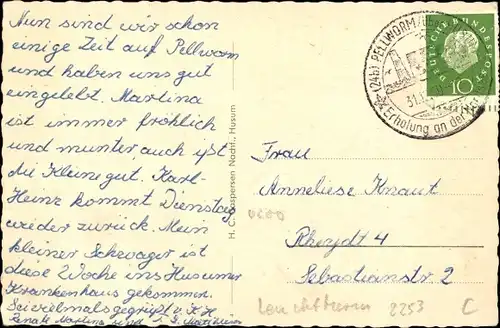 Nun sind wir schon
einige Zeit auf Pellworm
und haben uns gut
eingelebt. Martina
ist immer fröhlich
und munter, auch ißt
die Kleine gut. Karl-
Heinz kommt Dienstag
wieder zurück. Mein
kleiner Schwager ist
diese Woche ins Husumer
Krankenhaus gekommen.
Seid vielmals gegrüßt v. K. H.
Renate Martina und
H. C. Caspersen Nachf., Husum
(24b) PELLWORM
31.
Erholung an der
DEUTSCHE BUNDESPOST
10
Frau
Anneliese Knaut
Rheydt 4
Sebastianstr. 2
Leuchtturm 2253 C